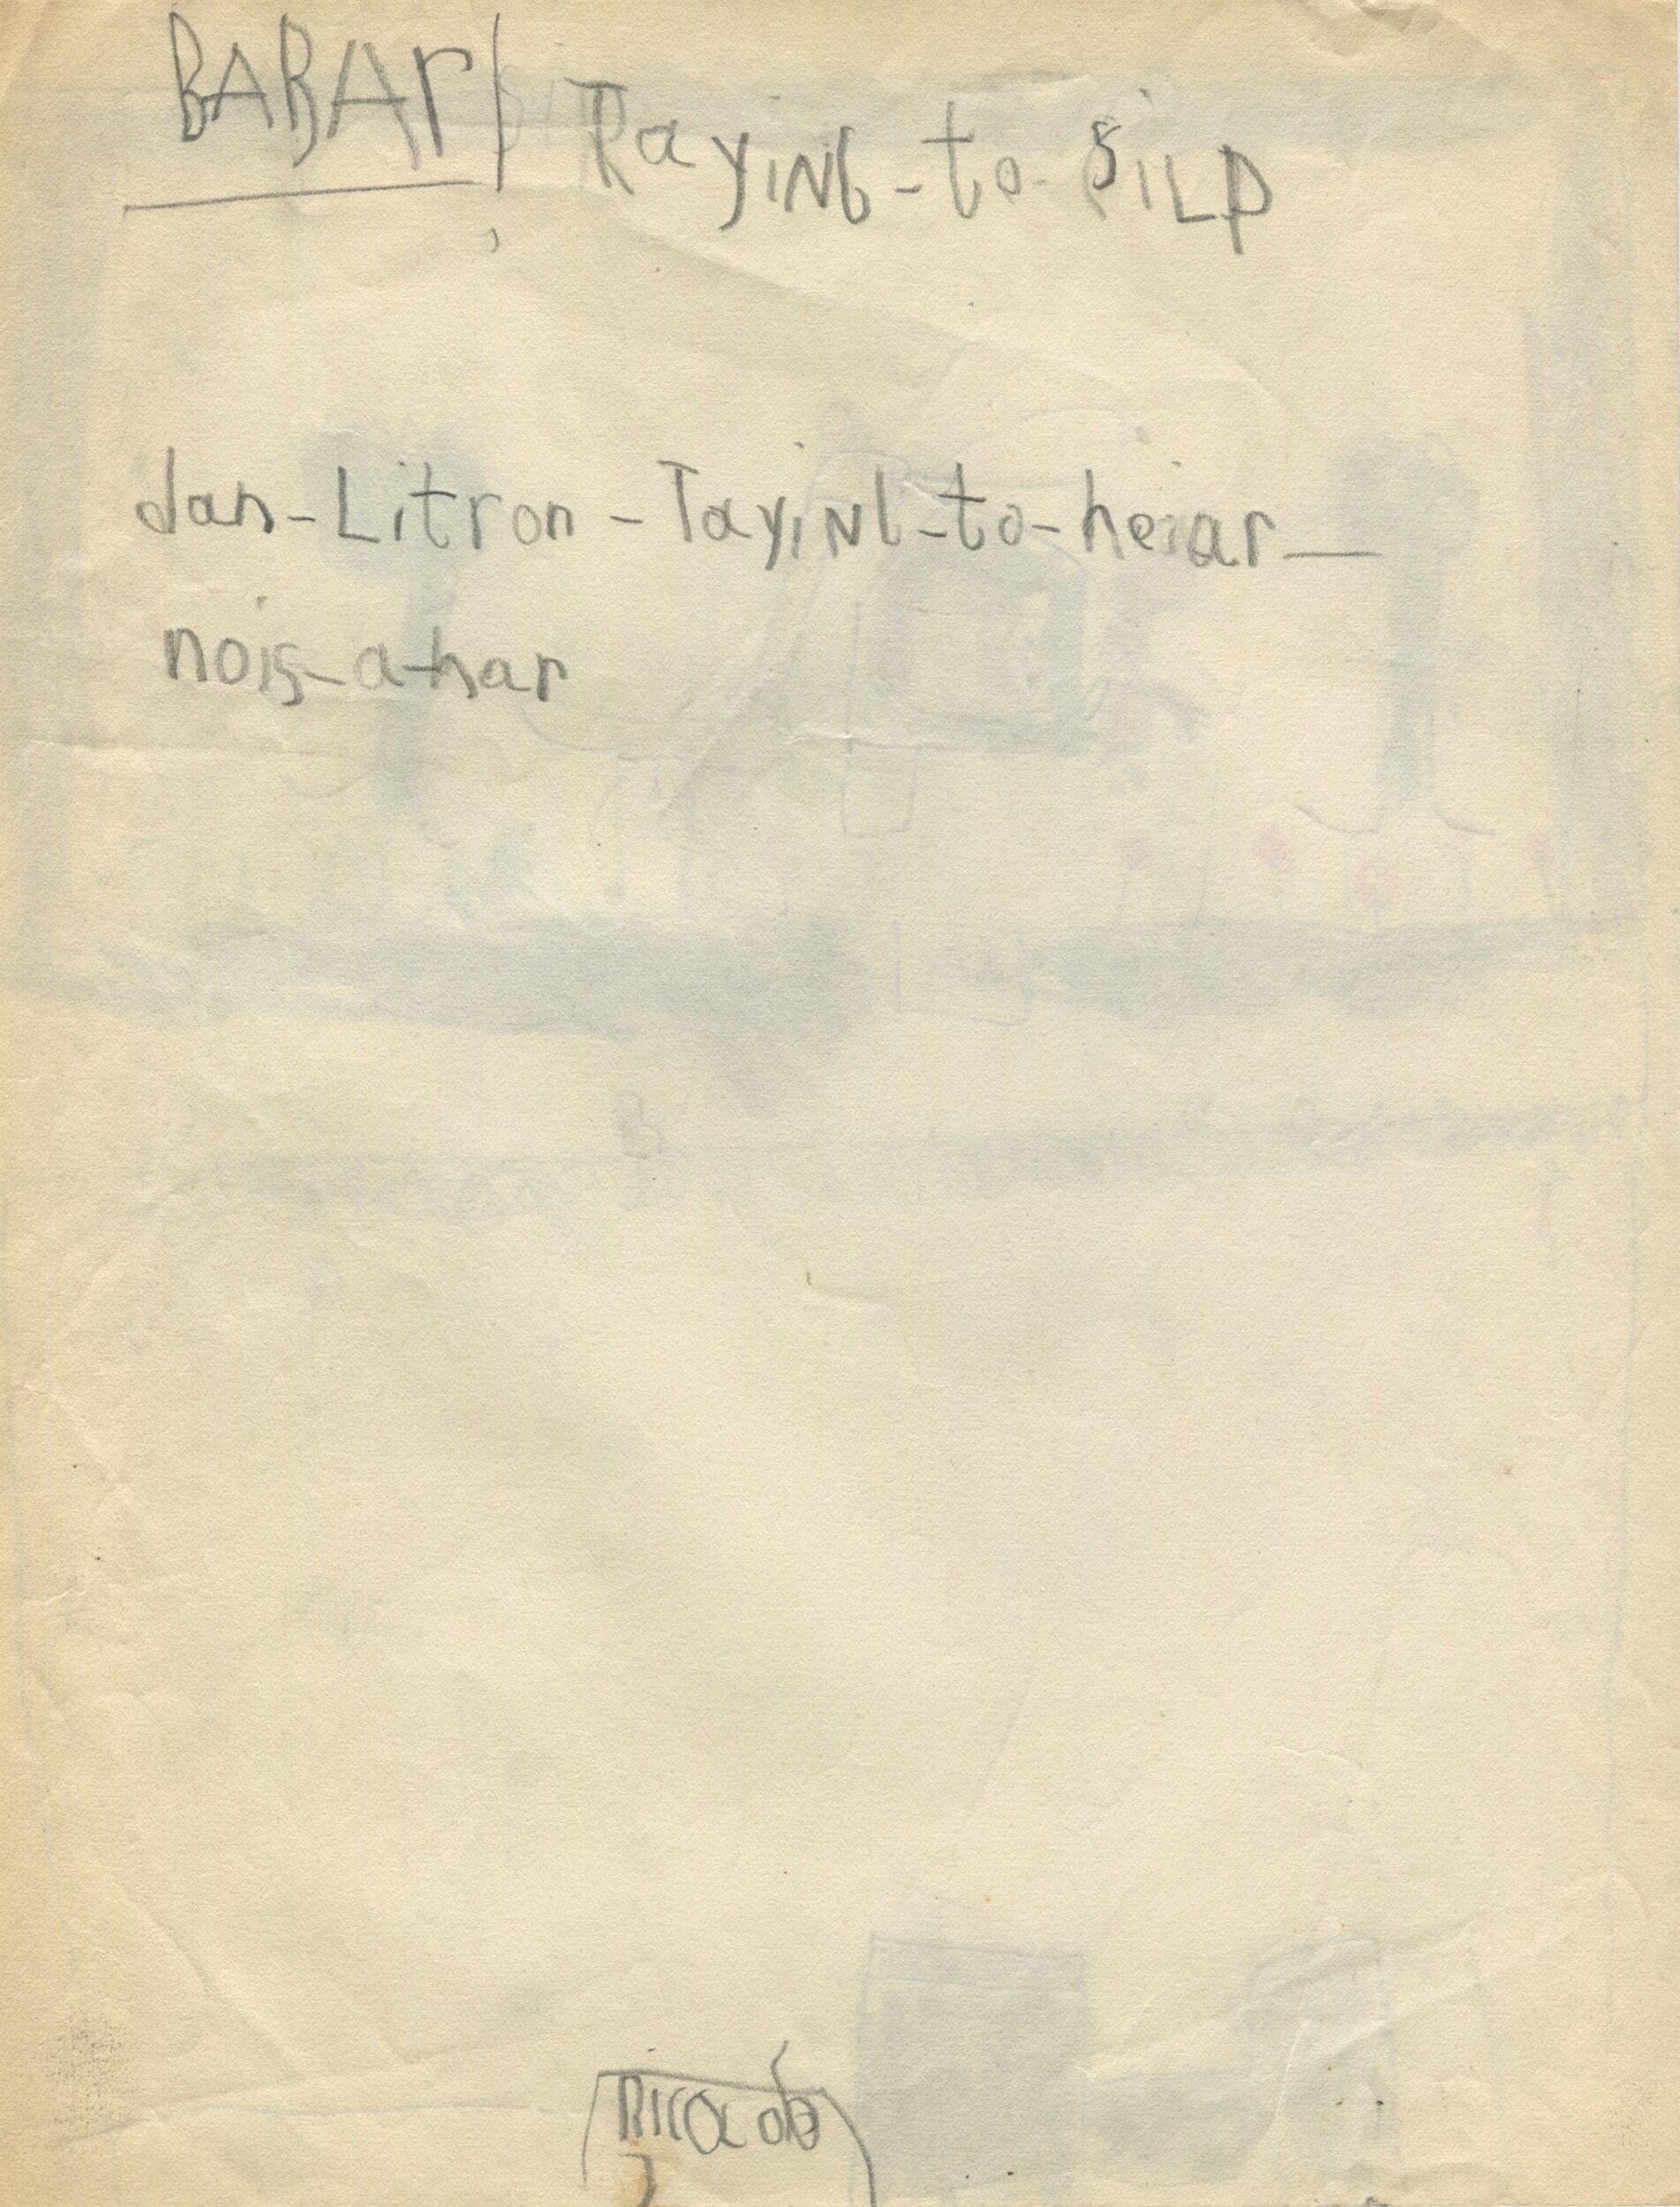 BABAr TRayiNG-to-SiLP
dan-Litron-TayiNG-to-heiar—
nois-a-har